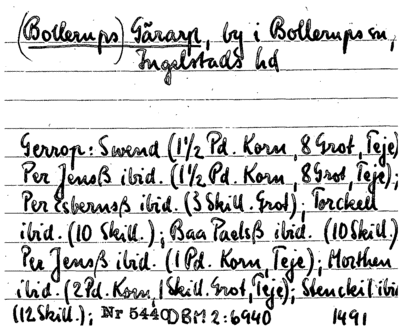 (Bollerups) Gärarp, by i Bollerups sn,
Ingelstads hd
Gerrop: Swend (1½ Pd. Korn, 8 Grot, Teje)
Per Jensß ibid. (1½ Pd. Korn, 8 Grot, Teje);
Per Esbernsß ibid. (3 Skill. Grot); Torckell
ibid. (10 Skill.); Baa Paelsß ibid. (10 Skill.)
Per Jensß ibid. (1 Pd. Korn, Teje); Morthen
ibid. (2 Pd. Korn, 1 Skill. Grot, Teje); Stenckil ibid
(12 Skill.); Nr 5440 DBM 2:6940 1491